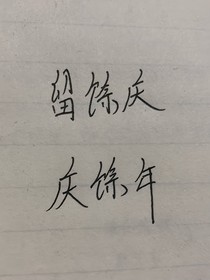 留馀庆
庆馀年